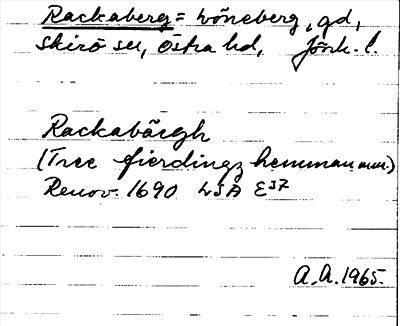 Rackaberg = Löneberg, gd,
Skirö sn, Östra hd, Jönk. l.
Rackabärgh
(Tree fierdingz hemman mm.)
Renov. 1690 LSA E37
A.A. 1965.